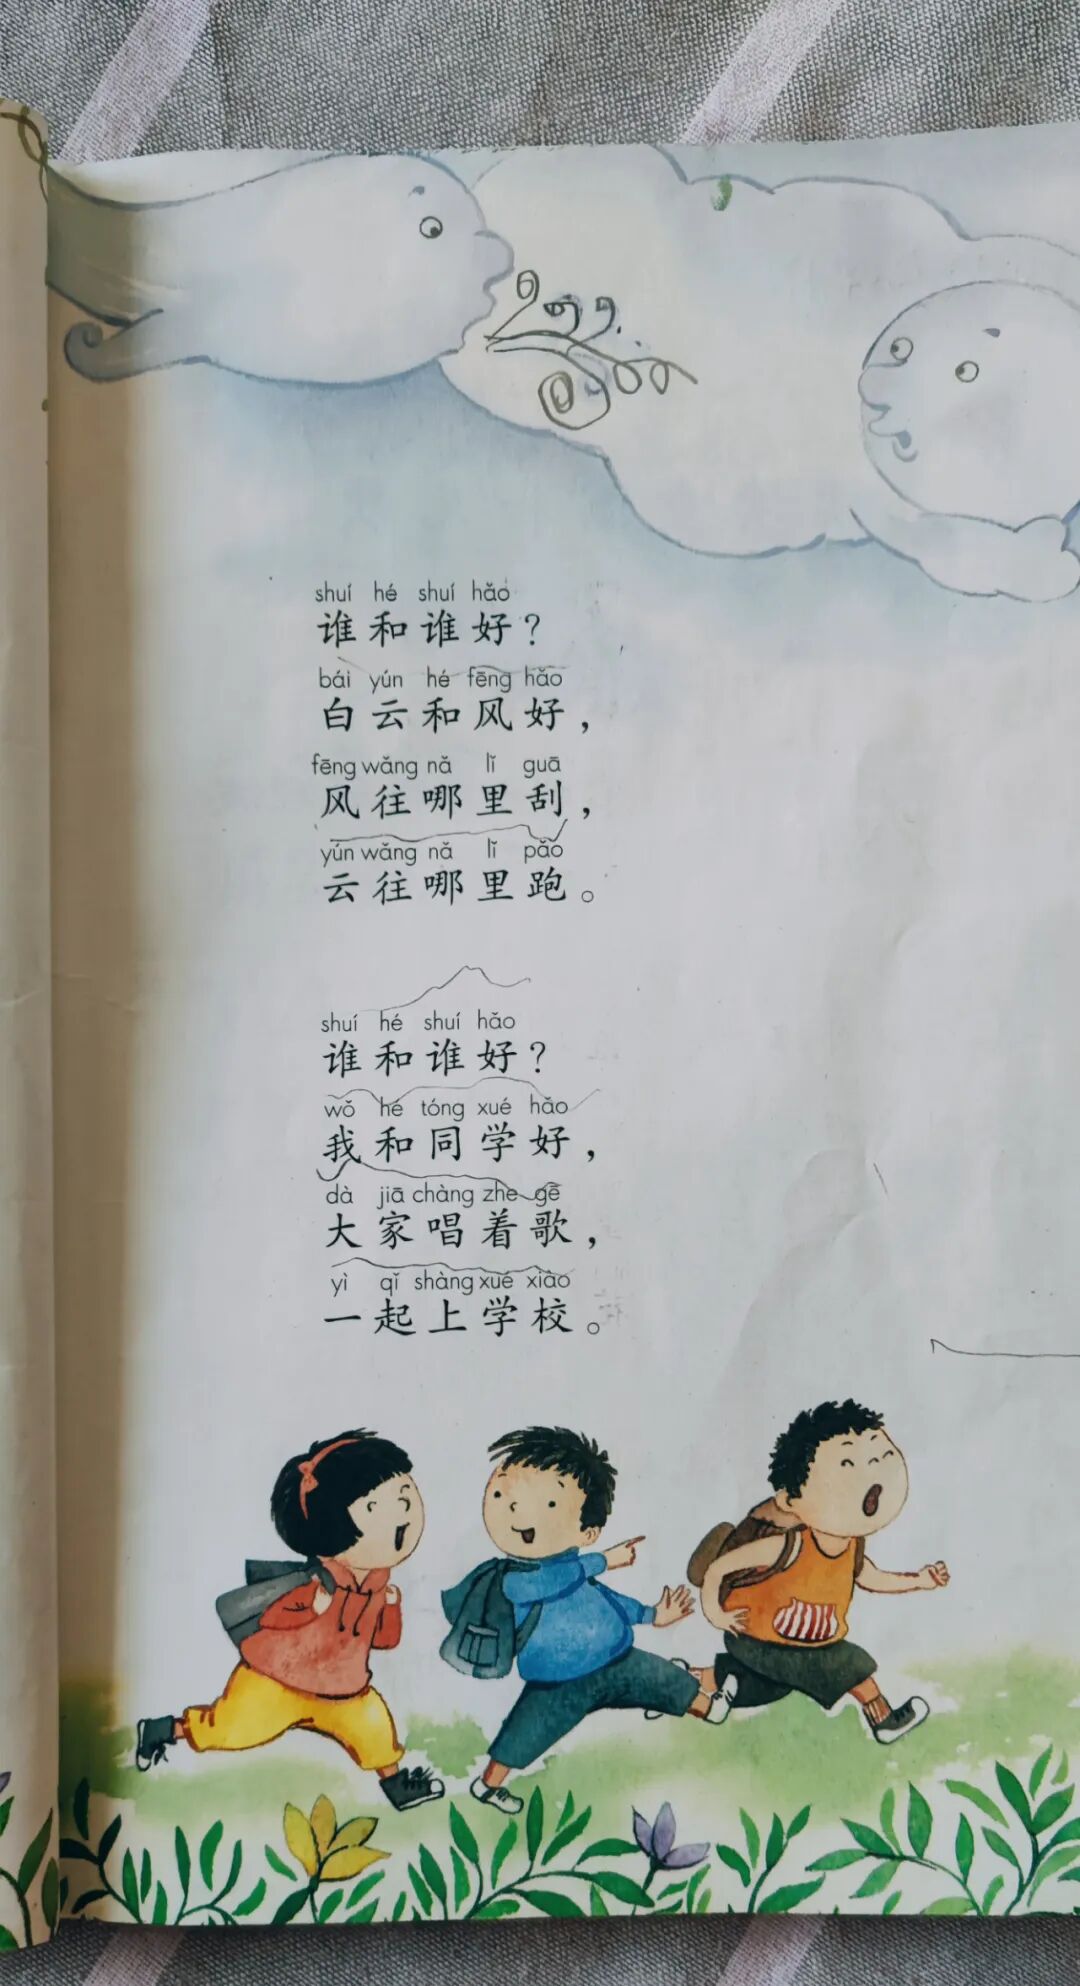 shuí hé shuí hǎo
谁和谁好？
bái yún hé fēng hǎo
白云和风好，
fēng wǎng nǎ lǐ guā
风往哪里刮，
yún wǎng nǎ lǐ pǎo
云往哪里跑。
shuí hé shuí hǎo
谁和谁好？
wǒ hé tóng xué hǎo
我和同学好，
dà jiā chàng zhe gē
大家唱着歌，
yì qǐ shàng xué xiào
一起上学校。